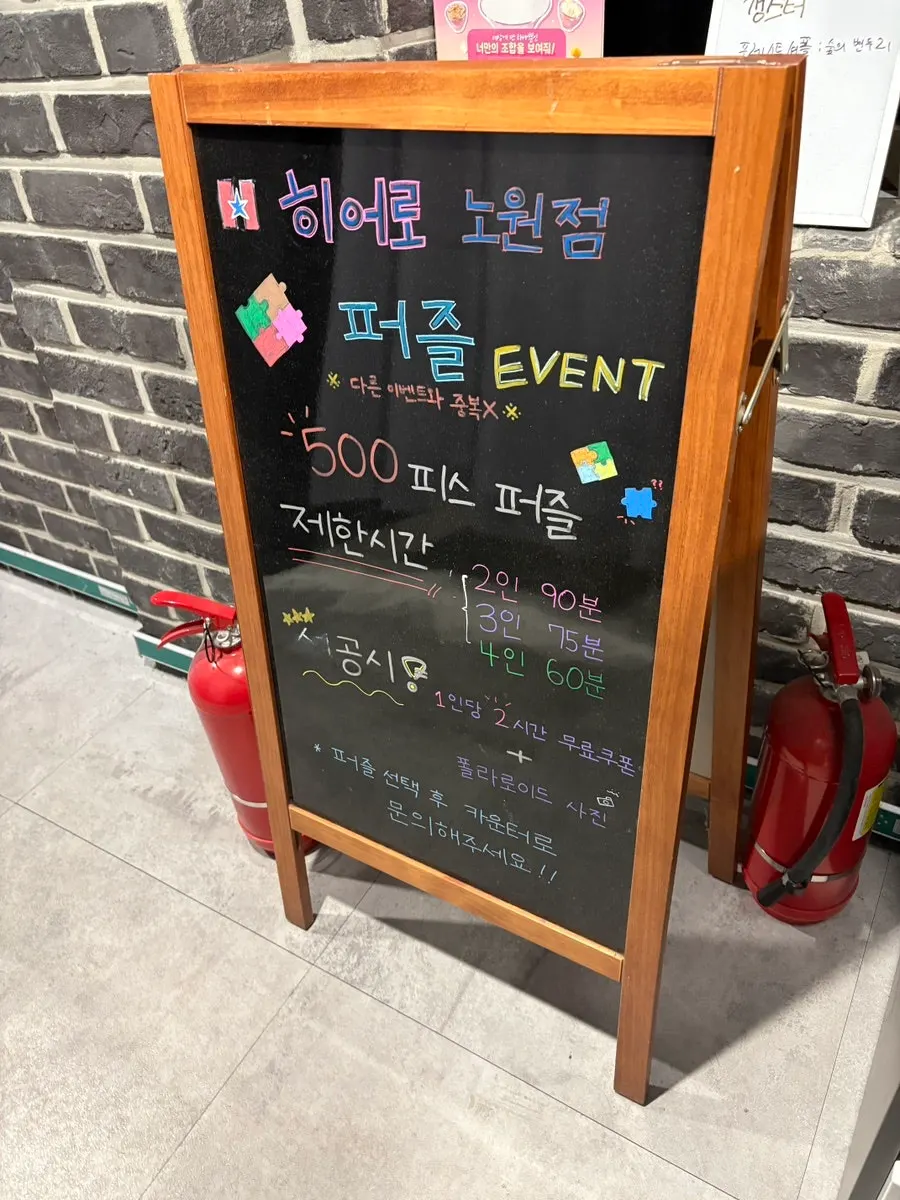 너만의 조합을 보여줘!
갱스터
히어로 노원점
퍼즐 EVENT
다른 이벤트와 중복X
500 피스 퍼즐
??
제한시간
2인 90분
3인 75분
4인 60분
성공시!
1인당 2시간 무료쿠폰
+
폴라로이드 사진
* 퍼즐 선택 후 카운터로
문의해주세요!!